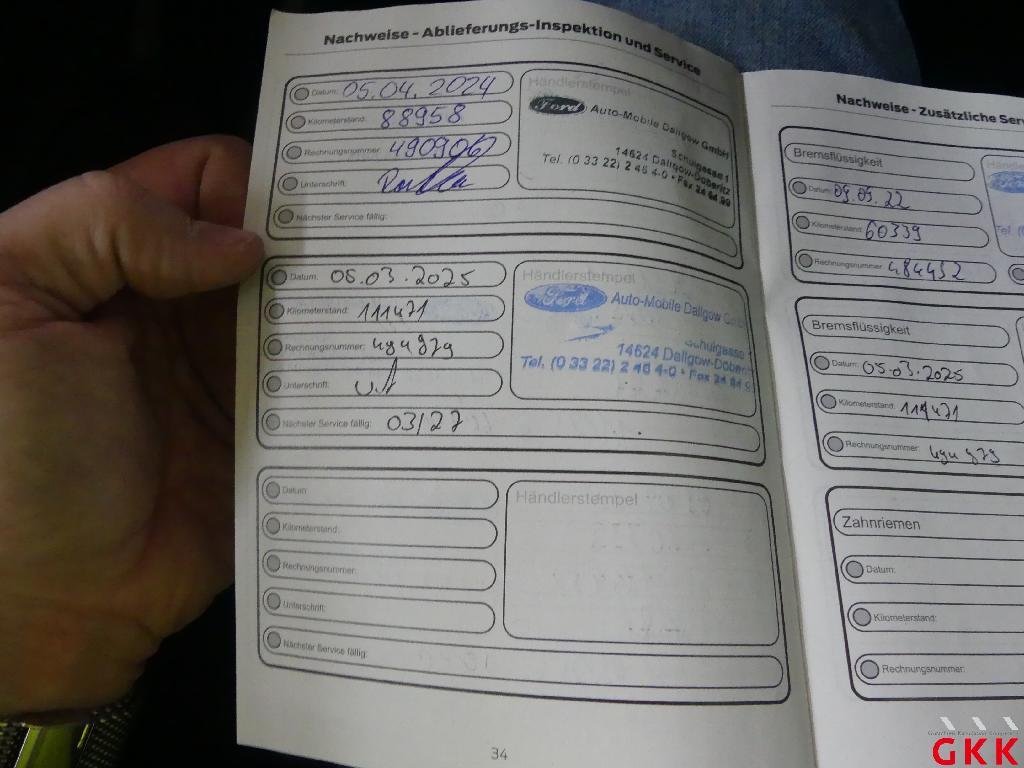 Nachweise - Ablieferungs-Inspektion und Service
Datum: 05.04.2024
Kilometerstand: 88958
Rechnungsnummer: 4909067
Unterschrift:
Nächster Service fällig:
Händlerstempel
Ford Auto-Mobile Dallgow GmbH
Schulgasse 1
14624 Dallgow-Döberitz
Tel. (0 33 22) 2 46 4-0 • Fax 24 64 99
Datum: 05.03.2025
Kilometerstand: 111471
Rechnungsnummer:
Unterschrift:
Nächster Service fällig: 03/27
Händlerstempel
Ford Auto-Mobile Dallgow
Schulgasse
14624 Dallgow-Döberitz
Tel. (0 33 22) 2 46 4-0 • Fax 24 64 9
Datum:
Kilometerstand:
Rechnungsnummer:
Unterschrift:
Nächster Service fällig:
Händlerstempel
34
Nachweise - Zusätzliche Serv
Bremsflüssigkeit
Datum: 09.05.22
Kilometerstand: 60339
Rechnungsnummer: 484452
Tel. (
Bremsflüssigkeit
Datum: 05.03.2025
Kilometerstand: 111471
Rechnungsnummer:
Zahnriemen
Datum:
Kilometerstand:
Rechnungsnummer:
GKK